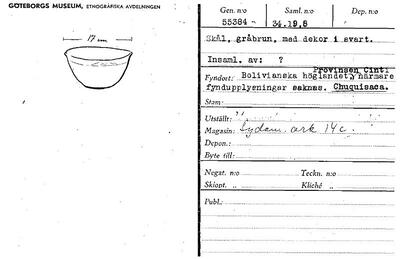 GÖTEBORGS MUSEUM, ETNOGRAFISKA AVDELNINGEN
17 cm.
Gen. n:o Saml. n:o Dep. n:o
55384 34.19.8
Skål, gråbrun, med dekor i svart.
Insaml. av: ?
Provinsen Cinti.
Fyndort: Bolivianska höglandet, närmare
fyndupplysningar saknas. Chuquisaca.
Stam:
Utställt: "
Magasin: Sydam. ark 14c.
Depon.:
Byte till:
Negat. n:o Teckn. n:o
Skiopt. „ Kliché „
Publ.: